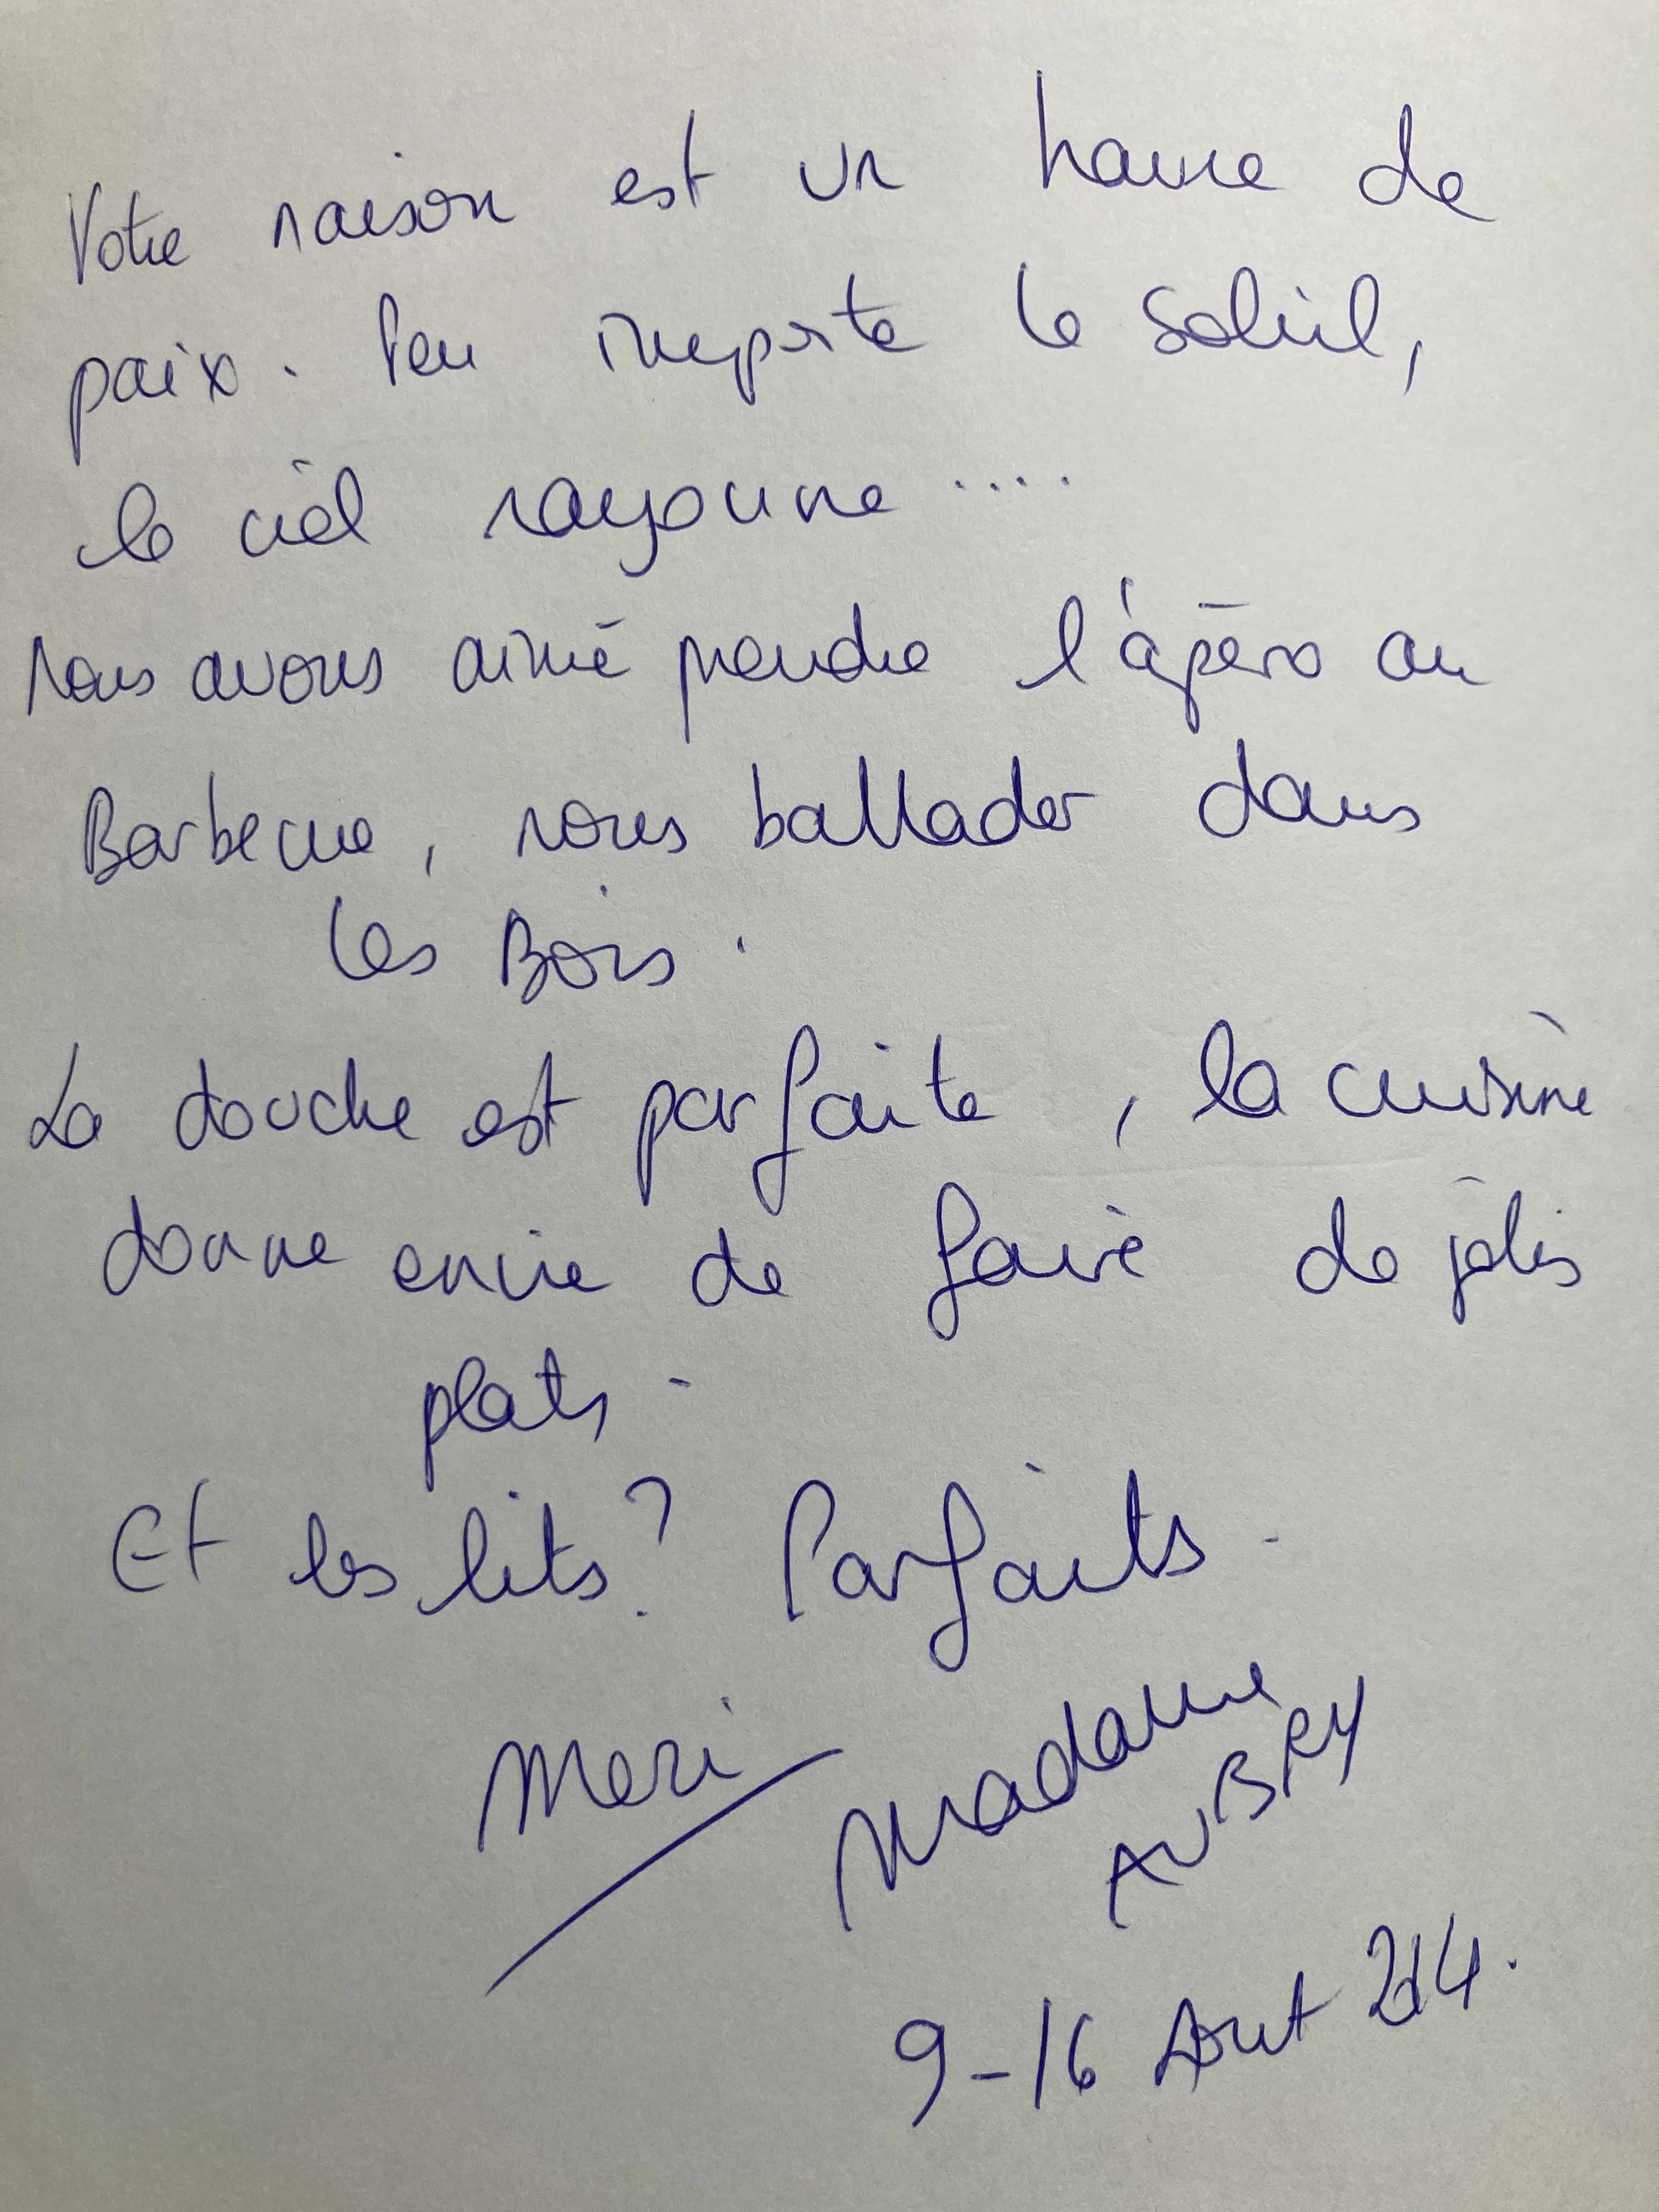 Votre maison est un havre de
paix. Peu importe le soleil,
le ciel rayonne ....
Nous avons aimé prendre l'apéro au
Barbecue, nous ballader dans
les Bois.
La douche est parfaite, la cuisine
donne envie de faire de jolis
plats.
Et les lits? Parfaits.
Merci Madame
AUBRY
9-16 Aout